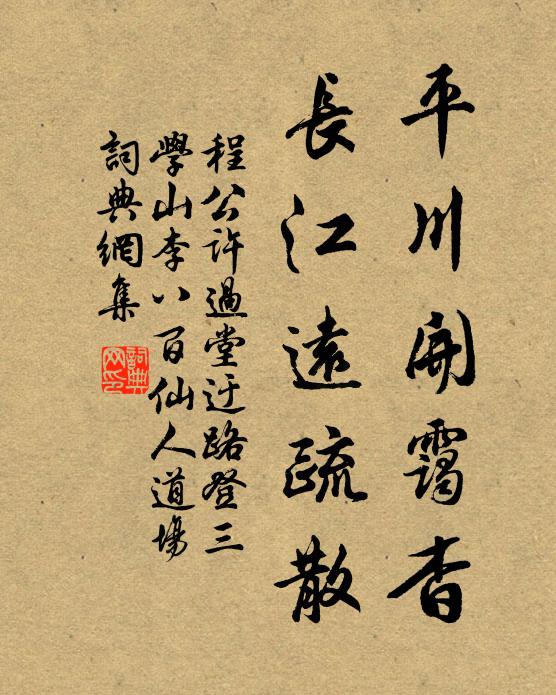 平川開靄杳
長江遠疏散
程公許過堂迂路登三
學山李八百仙人道場
詞典網集
詞典网印